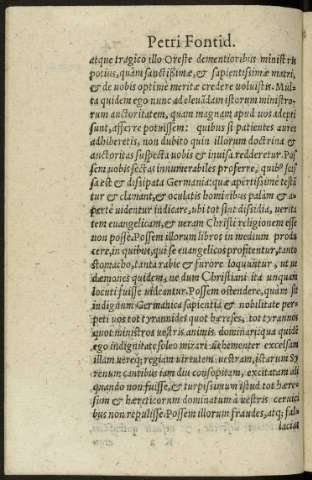 Petri Fontid.
atque tragico illo Oreste dementioribus ministris
potius, quàm sanctissimæ, & sapientissimæ matri,
& de uobis optime meritæ credere uoluistis. Mul-
ta quidem ego nunc ad eleuãdam istorum ministro-
rum auctoritatem, quam magnam apud uos adepti
sunt, afferre potuissem: quibus si patientes aures
adhiberetis, non dubito quin illorum doctrina &
auctoritas suspecta uobis & inuisa redderetur. Pos
sem uobis sectas innumerabiles proferre, quib⁹ scis
sa est & dissipata Germania: quæ apertissime testã
tur & clamant, & oculatis hominibus palàm & a-
pertè uidentur indicare, ubi tot sint dissidia, uerita
tem euangelicam, & ueram Christi religionem esse
non posse. Possem illorum libros in medium produ
cere, in quibus, qui se euangelicos profitentur, tanto
stomacho, tanta rabie & furore loquuntur, ut ne
dæmones quidem, ne dum Christiani ita unquam
locuti fuisse uideantur. Possem ostendere, quàm sit
indignũ Germanica sapientia & nobilitate per-
peti uos tot tyrannides quot hæreses, tot tyrannos
quot ministros uestris animis dominari: qua quidẽ
ego indignitate soleo mirari uehementer excelsam
illam uereq; regiam uirtutem uestram, istarum Sy
renum cantibus iam diu consopitam, excitatam ali
quando non fuisse, & turpissimum istud tot hære-
sim & hæreticorum dominatum à uestris ceruici
bus non repulisse. Possem illorum fraudes, atq; fal-
lacias